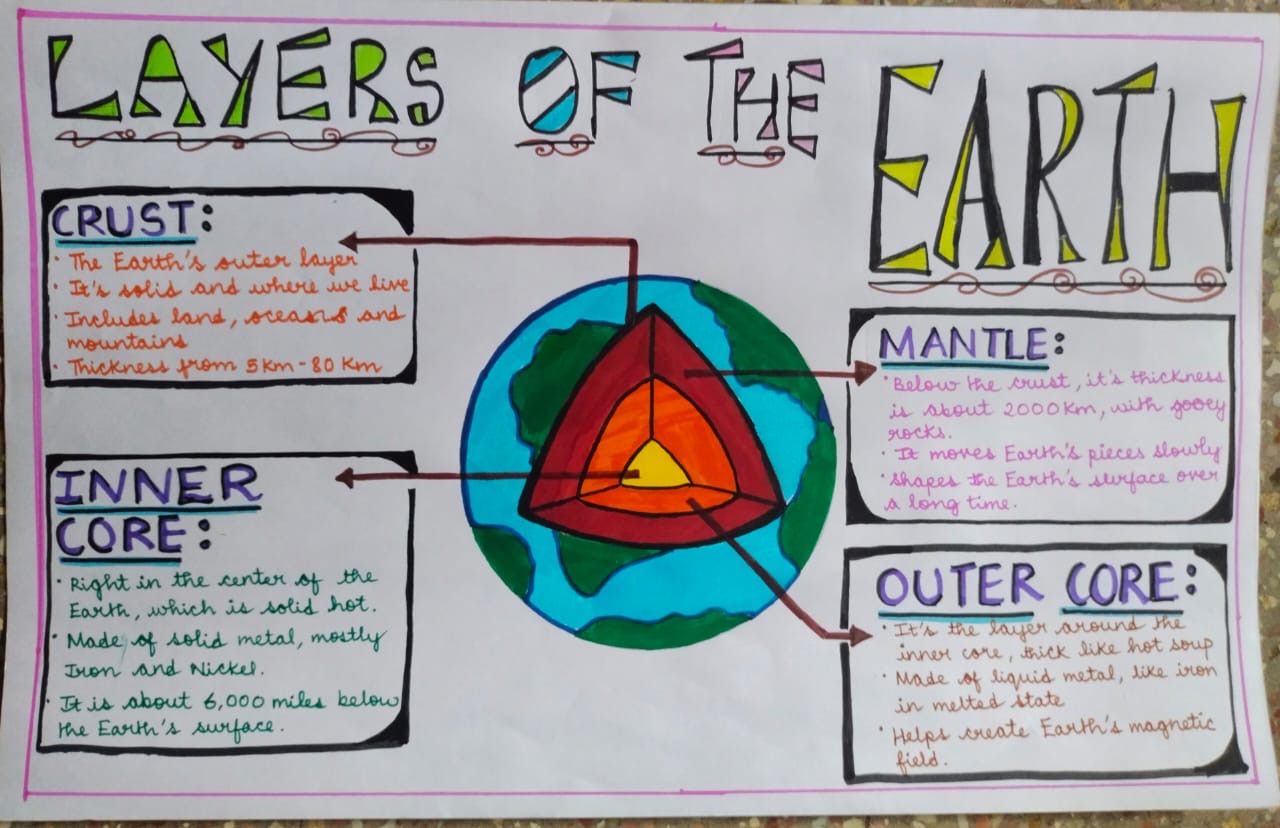 LAYERS OF THE EARTH
CRUST:
· The Earth's outer layer
· It's solid and where we live
· Includes land, oceans and
mountains
· Thickness from 5km - 80 Km
INNER
CORE:
· Right in the center of the
Earth, which is solid hot.
· Made of solid metal, mostly
Iron and Nickel.
· It is about 6,000 miles below
the Earth's surface.
MANTLE:
· Below the crust, it's thickness
is about 2000 Km, with gooey
rocks.
· It moves Earth's pieces slowly
· Shapes the Earth's surface over
a long time.
OUTER CORE:
· It's the layer around the
inner core, thick like hot soup
· Made of liquid metal, like iron
in melted state
· Helps create Earth's magnetic
field.